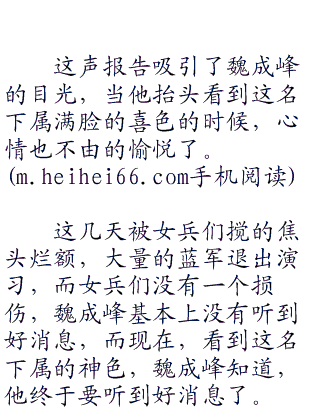 这声报告吸引了魏成峰
的目光，当他抬头看到这名
下属满脸的喜色的时候，心
情也不由的愉悦了。
(m.heihei66.com手机阅读)
这几天被女兵们搅的焦
头烂额，大量的蓝军退出演
习，而女兵们没有一个损
伤，魏成峰基本上没有听到
好消息，而现在，看到这名
下属的神色，魏成峰知道，
他终于要听到好消息了。